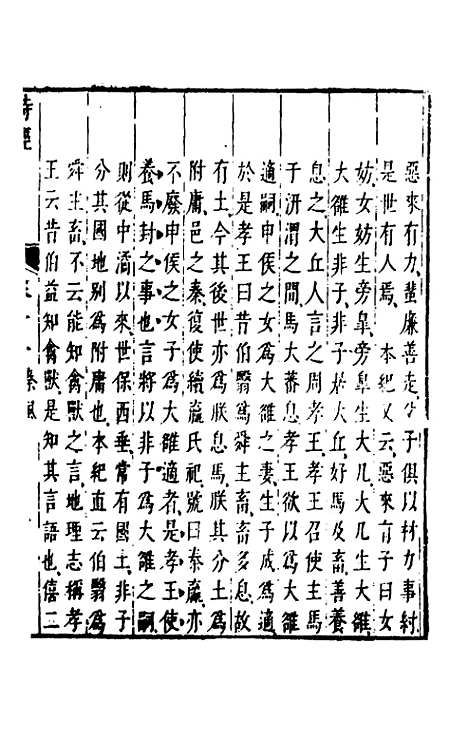 惡來有力蜚廉善走父子俱以材力事紂
是世有人焉本紀又云惡來有子曰女
妨女妨生旁皐旁皐生大几大几生大雒
大雒生非子非子居犬丘好馬及畜善養
息之犬丘人言之周孝王孝王召使主馬
于汧渭之間馬大蕃息孝王欲以爲大雒
適嗣申侯之女爲大雒之妻生子成爲適
於是孝王曰昔伯翳爲舜主畜畜多息故
有土今其後世亦爲朕息馬朕其分土爲
附庸邑之秦復使續嬴氏祀號曰秦嬴亦
不廢申侯之女子爲大雒適者是孝王使
養馬封之事也言將以非子爲大雒之嗣
則從中潏以來世保西垂常有國土非子
分其國地別爲附庸也本紀直云伯翳爲
舜主畜不云能知禽獸之言地理志稱孝
王云昔伯益知禽獸是知其言語也僖二
詩經
秦風